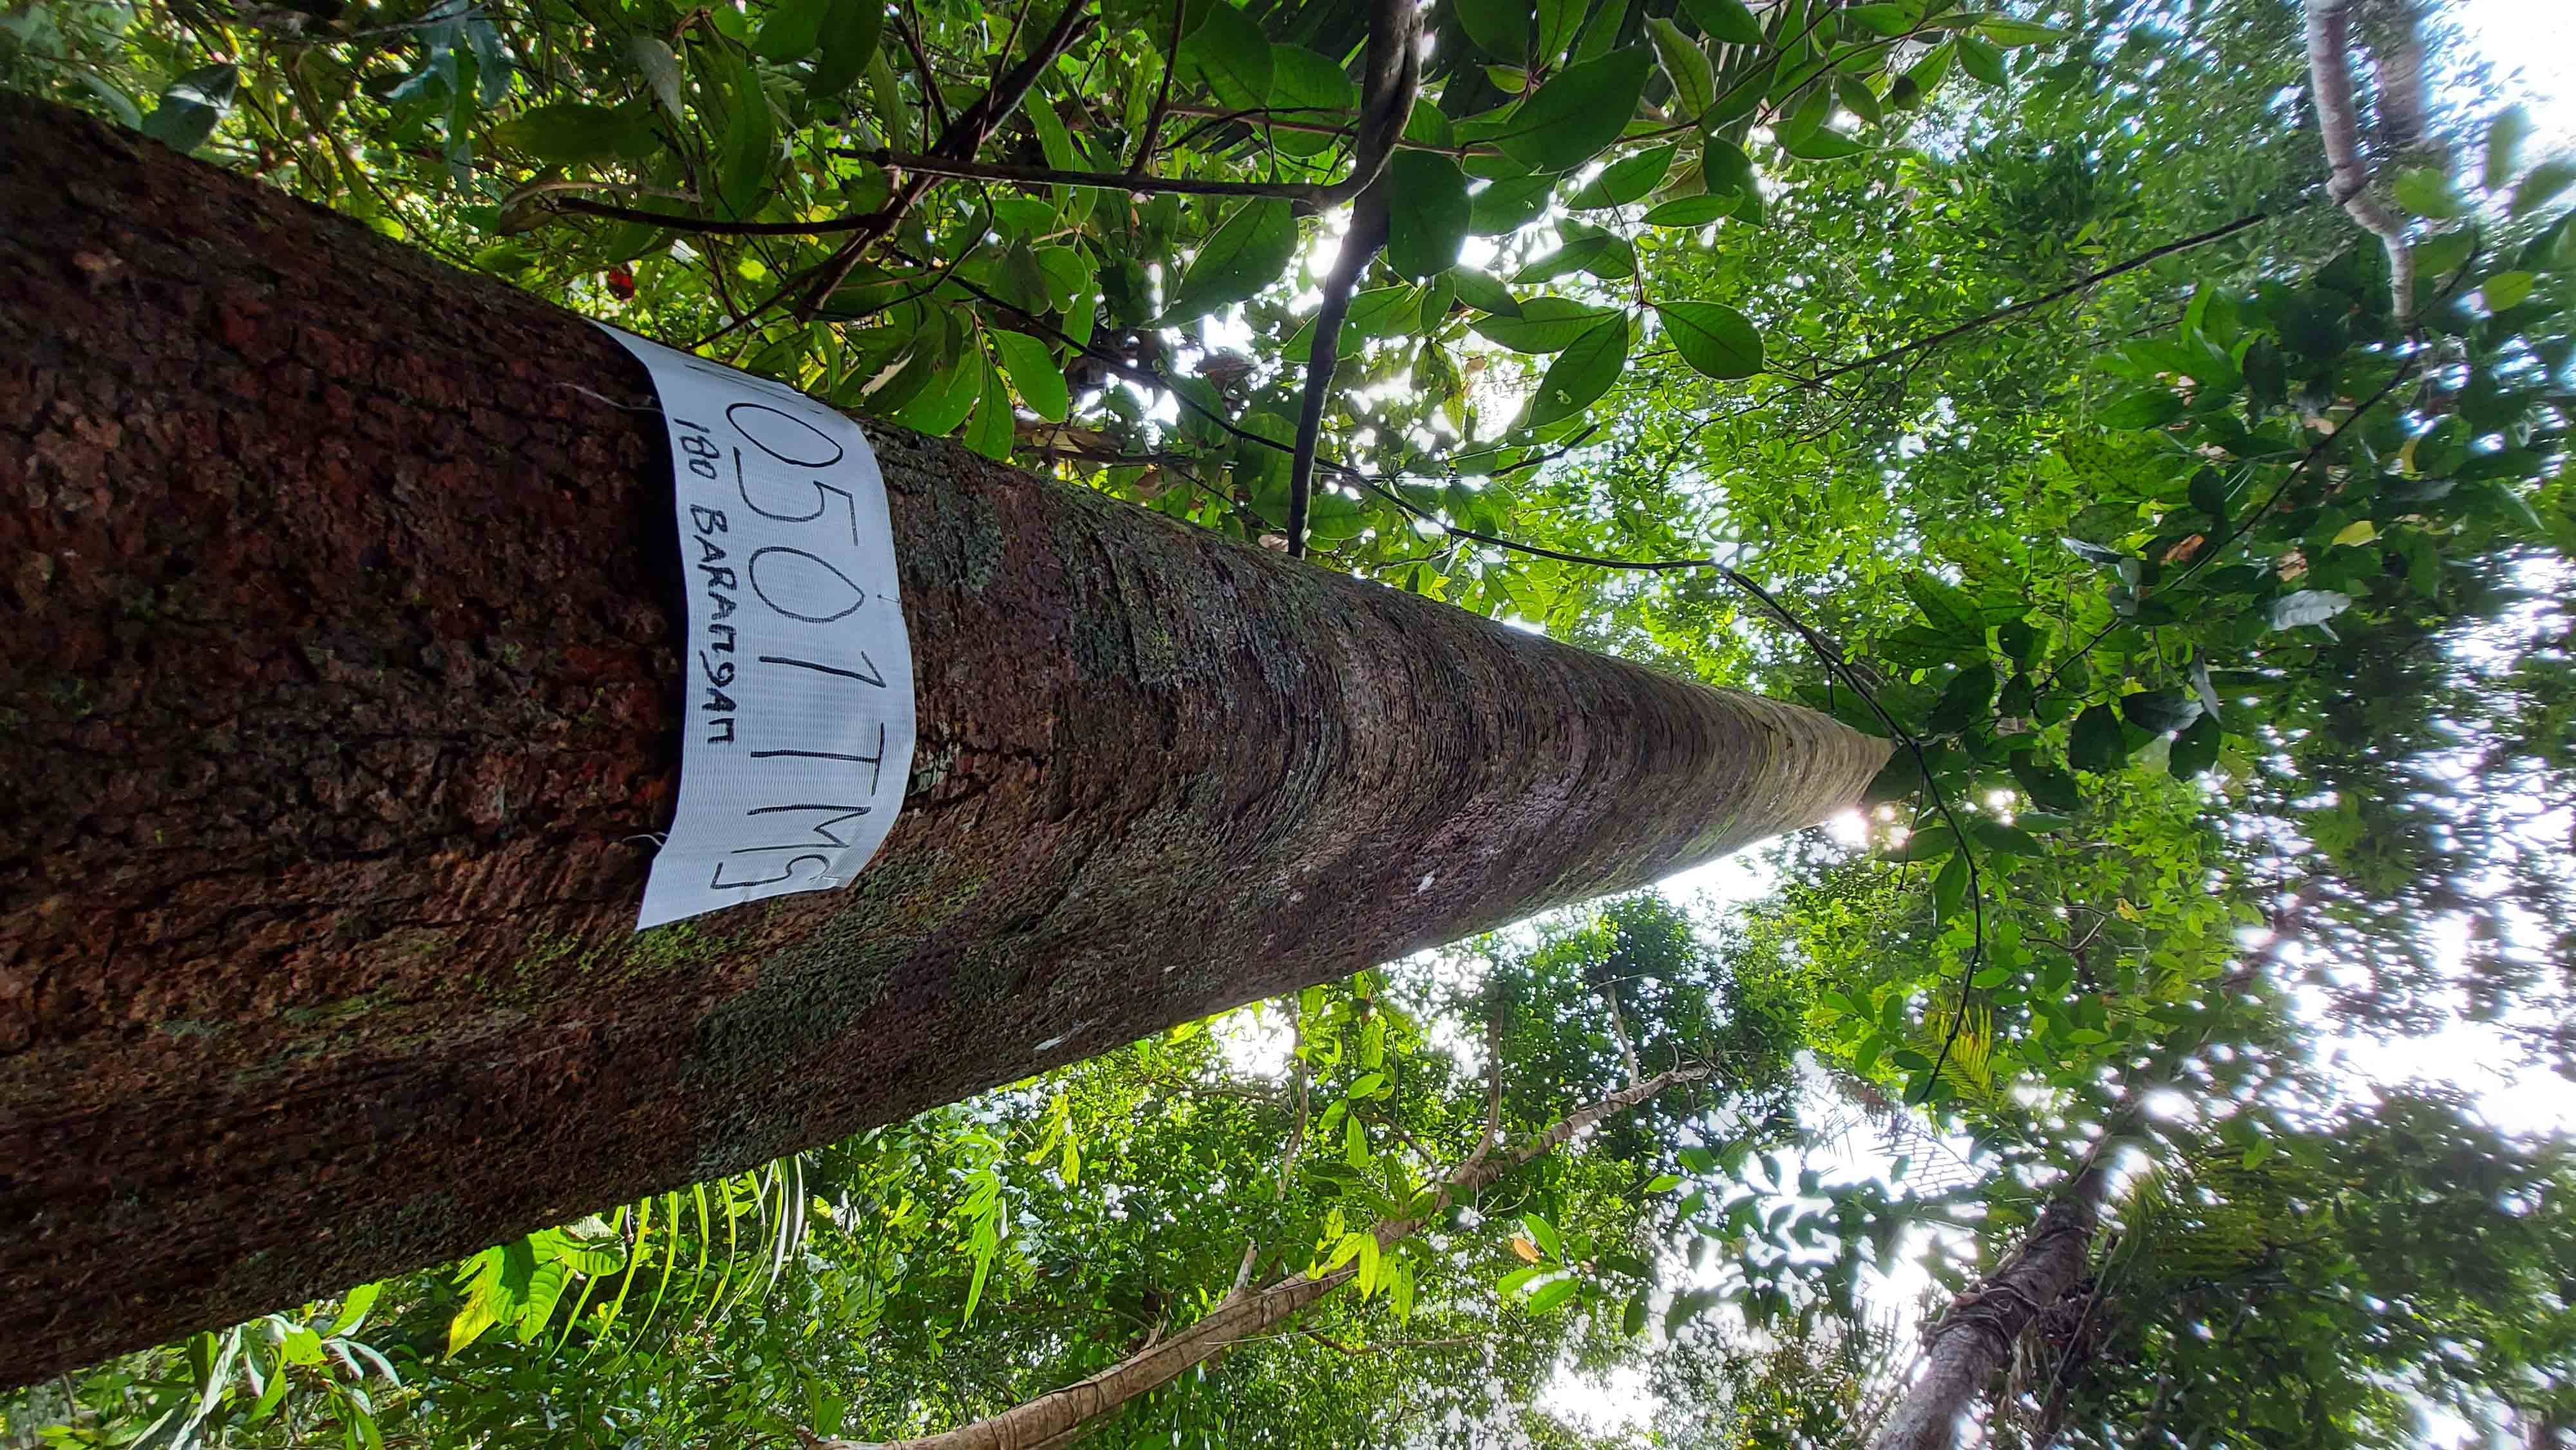 10501 TMS
180 BARANGAN